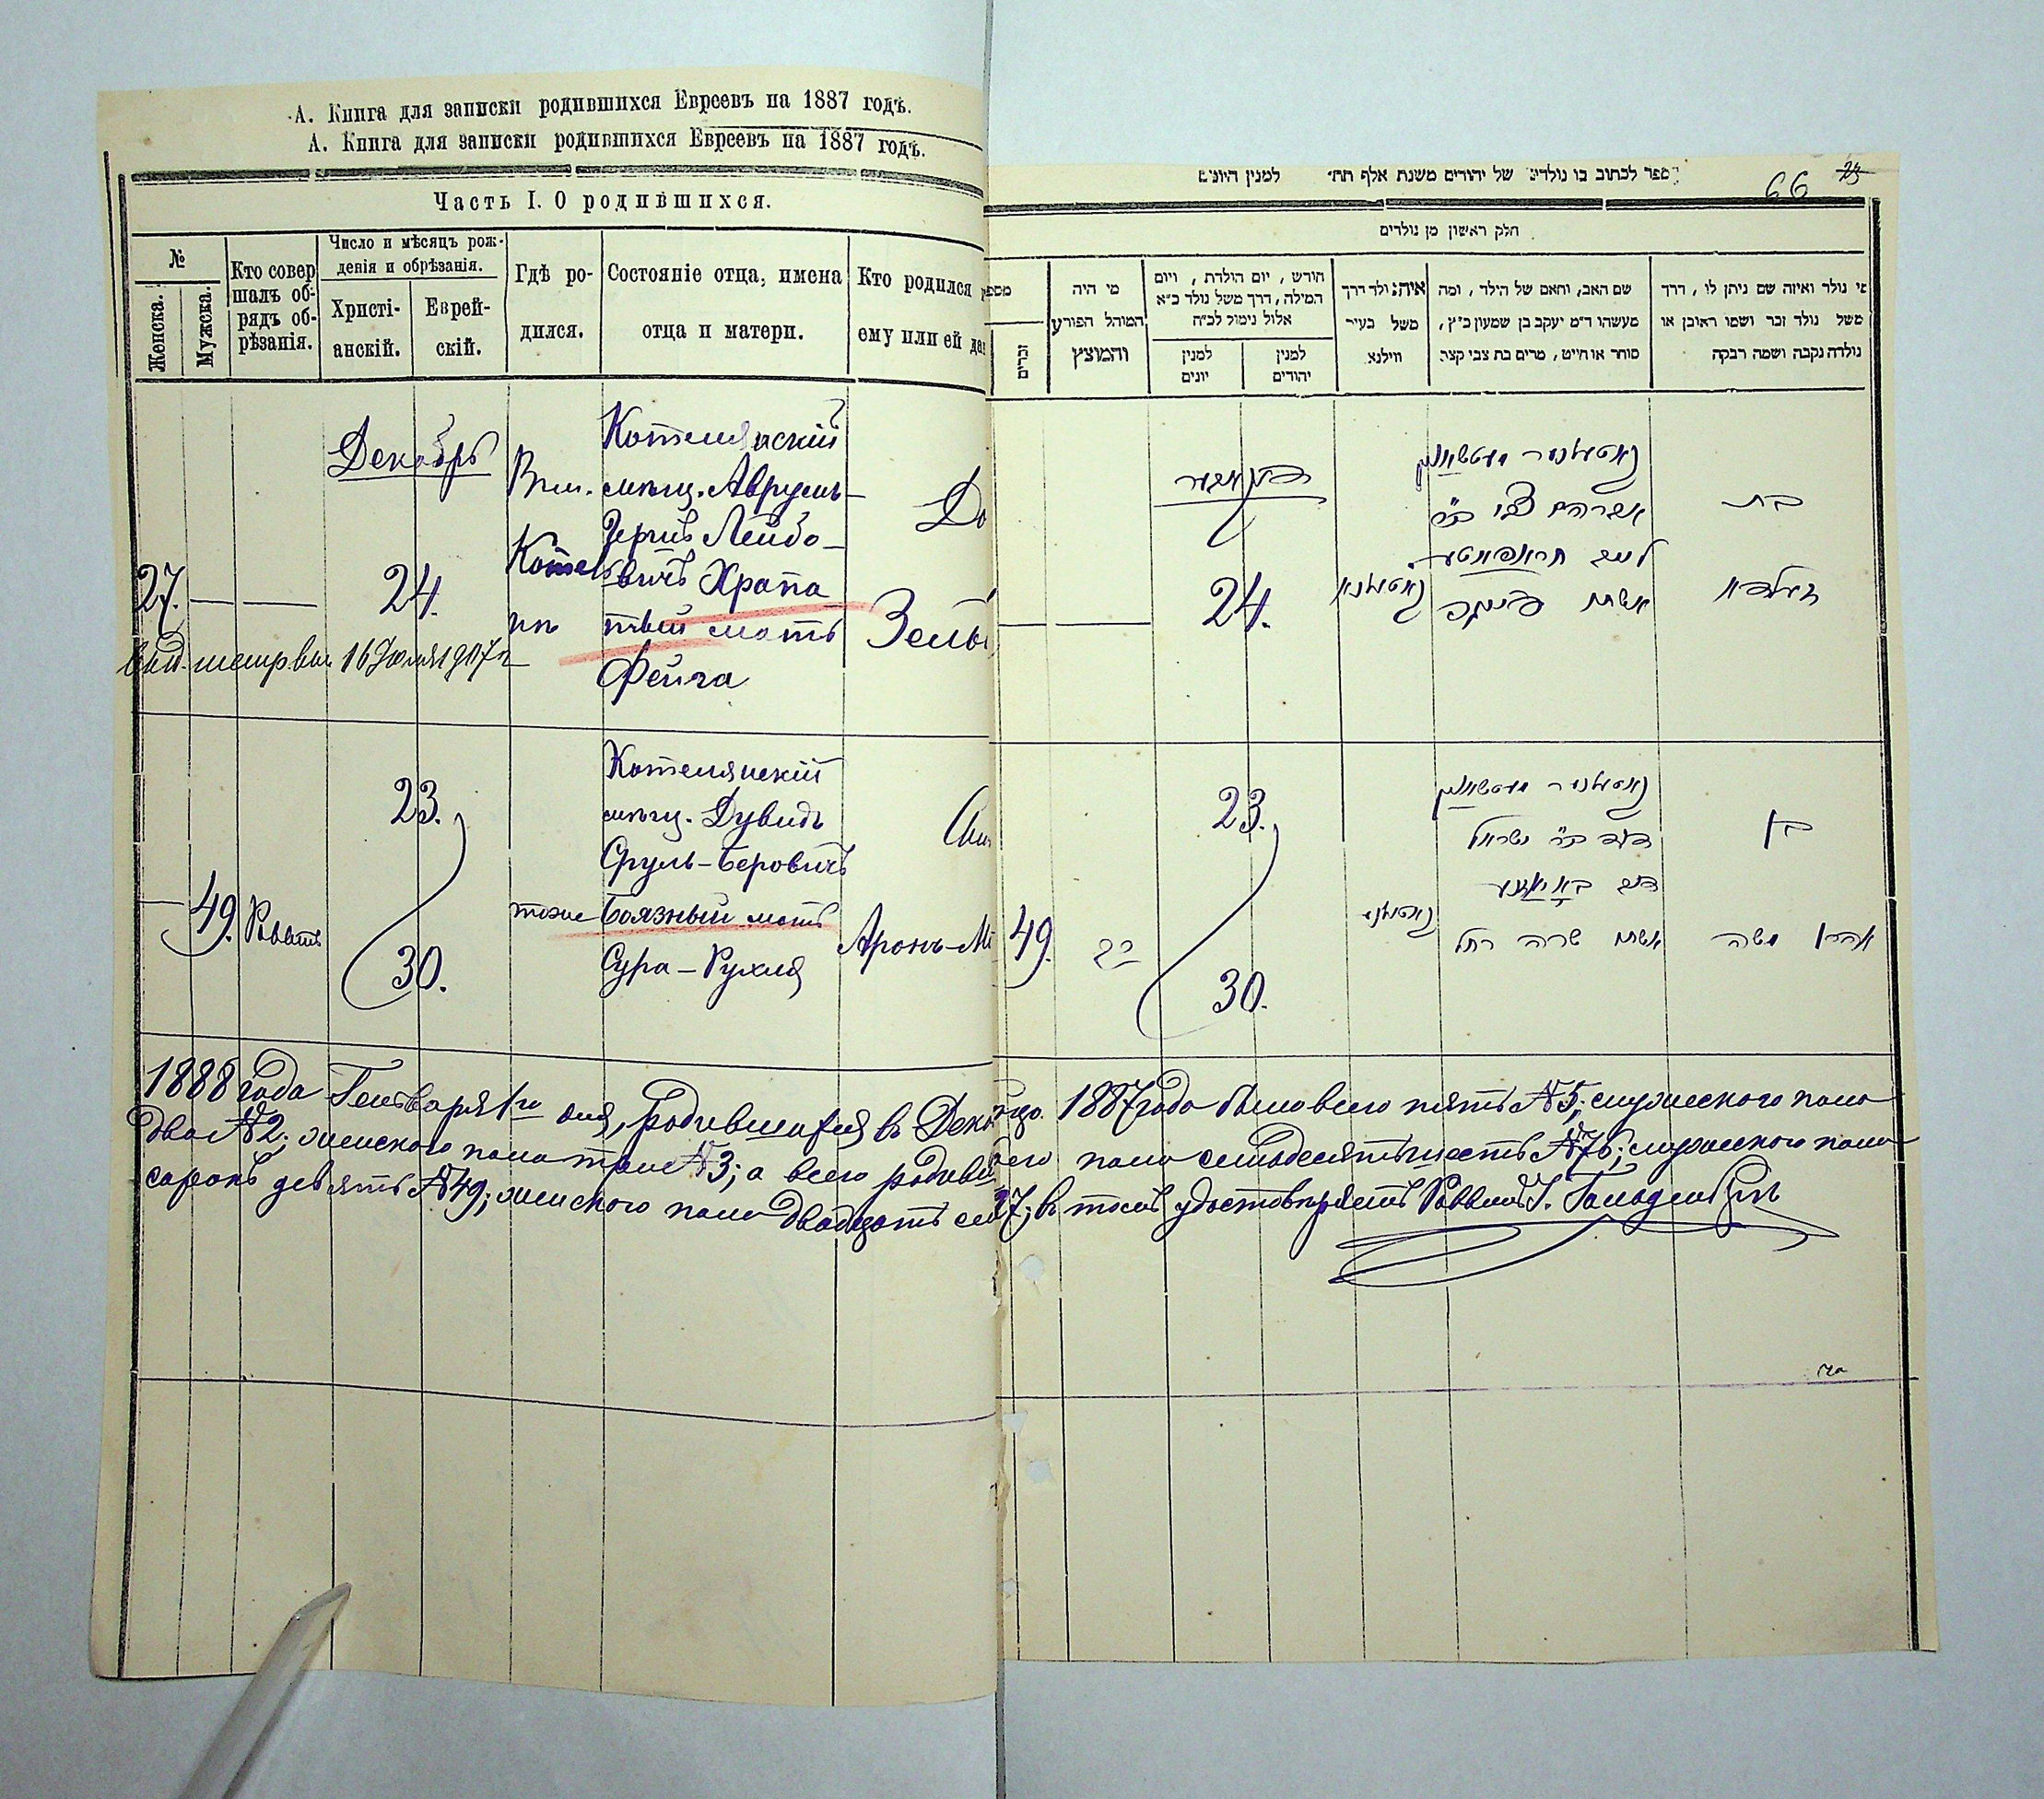 А. Книга для записки родившихся Евреевъ на 1887 годъ.
А. Книга для записки родившихся Евреевъ на 1887 годъ.
Часть I. О родившихся.
№
Женска.
Мужска.
Кто совер
шалъ об-
рядъ об-
рѣзанія.
Число и мѣсяцъ рож-
денія и обрѣзанія.
Христі-
анскій.
Еврей-
скій.
Гдѣ ро-
дился.
Состояніе отца, имена
отца и матери.
Кто родился
ему или ей да
Декабрь
27.
24.
Котелянскій
мѣщ. Аврумъ-
Гершъ Лейбо-
вичъ Храпа
тый мать
Фейга
До
Зелы
16 Іюля 1907 г
49.
Раввинъ
23.
30.
тоже
Котелянскій
мѣщ. Дувидъ
Сруль-Беровичъ
Боязный мать
Сура-Рухля
Сын
Аронъ-М
ספר לכתוב בו נולדים של יהודים משנת אלף תת״ למנין היונים
66
חלק ראשון מן נולדים
זכרים
מי היה
המוהל הפורע
והמוצץ
חורש, יום הולדת, ויום
המילה, דרך משל נולד כ״א
אלול נימול לכ״ח
למנין
יונים
למנין
יהודים
איה נולד דרך
משל בעיר
ווילנא
שם האב, והאם של הילד, ומה
מעשהו ד״מ יעקב בן שמעון כ״ץ,
סוחר או חייט, מרים בת צבי קצר
מי נולד ואיזה שם ניתן לו, דרך
משל נולד זכר ושמו ראובן או
נולדה נקבה ושמה רבקה
24.
אברהם צבי ב״ר
ליב
אשתו פייגא
בת
זעלדא
49.
רב
23.
30.
דוד ב״ר ישראל
אשתו שרה רחל
בן
אהרן משה
1888 года Генваря 1го дня, родившихся въ Дека 1887 года было всего пять №5; мужескаго пола
два №2; женскаго пола три №3; а всего родивш пола семьдесятъ шесть №76; мужескаго пола
сорокъ девять №49; женскаго пола двадцать сем 27; въ томъ удостовѣряетъ Раввинъ